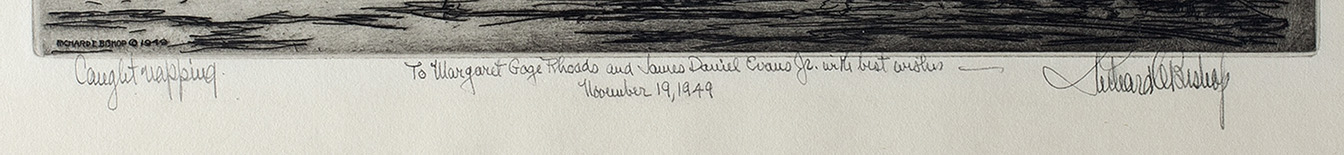 RICHARD E. BISHOP © 1949
Caught napping.
To Margaret Gage Rhoads and James Daniel Evans Jr. with best wishes —
November 19, 1949
Richard E. Bishop